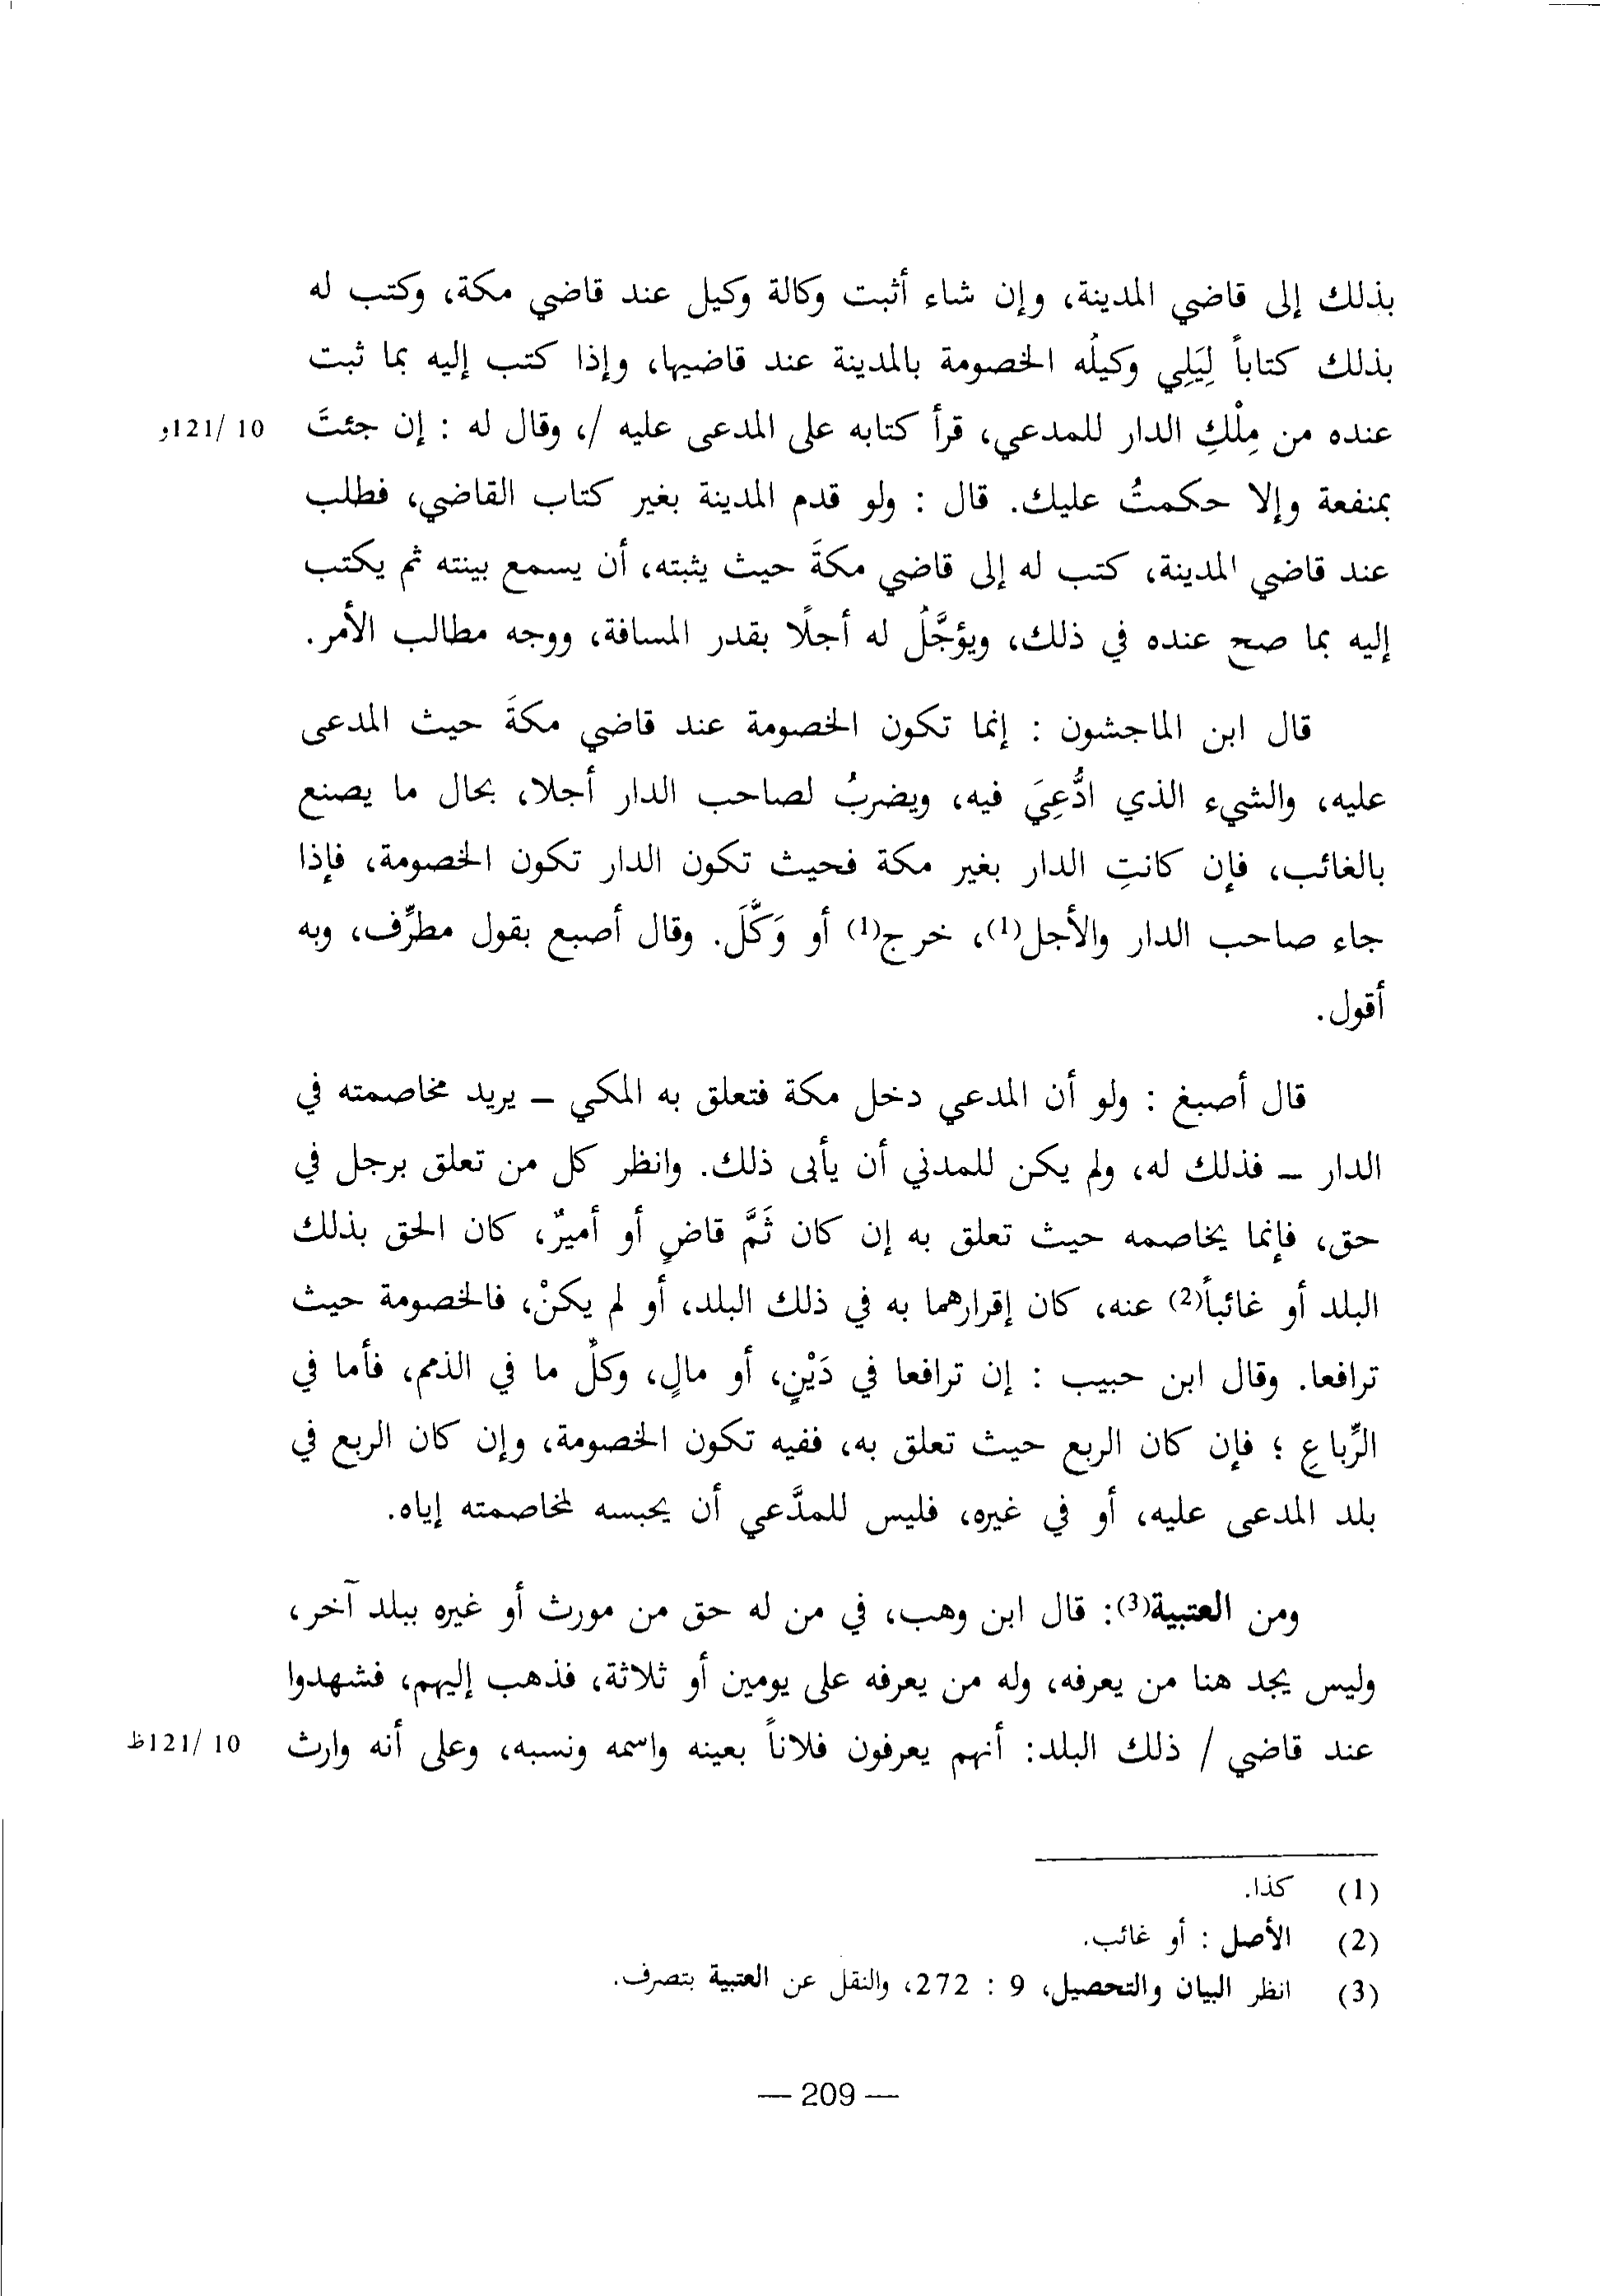 بذلك إلى قاضي المدينة، وإن شاء أثبت وكالة وكيل عند قاضي مكة، وكتب له
بذلك كتاباً لِيَلِي وكيلُه الخصومة بالمدينة عند قاضيها، وإذا كتب إليه بما ثبت
عنده من مِلْكِ الدار للمدعي، قرأ كتابه على المدعى عليه /، وقال له : إن جئتَ 10 /121و
بمنفعة وإلا حكمتُ عليك. قال : ولو قدم المدينة بغير كتاب القاضي، فطلب
عند قاضي المدينة، كتب له إلى قاضي مكةَ حيث يثبته، أن يسمع بينته ثم يكتب
إليه بما صح عنده في ذلك، ويؤجَّلُ له أجلًا بقدر المسافة، ووجه مطالب الأمر.
قال ابن الماجشون : إنما تكون الخصومة عند قاضي مكةَ حيث المدعى
عليه، والشيء الذي ادُّعِيَ فيه، ويضربُ لصاحب الدار أجلا، بحال ما يصنع
بالغائب، فإن كانتِ الدار بغير مكة فحيث تكون الدار تكون الخصومة، فإذا
جاء صاحب الدار والأجل(1)، خرج(1) أو وَكَّلَ. وقال أصبع بقول مطرِّف، وبه
أقول.
قال أصبغ : ولو أن المدعي دخل مكة فتعلق به المكي ــ يريد مخاصمته في
الدار ــ فذلك له، ولم يكن للمدني أن يأبى ذلك. وانظر كل من تعلق برجل في
حق، فإنما يخاصمه حيث تعلق به إن كان ثَمَّ قاضٍ أو أميرٌ، كان الحق بذلك
البلد أو غائباً(2) عنه، كان إقرارهما به في ذلك البلد، أو لم يكنْ، فالخصومة حيث
ترافعا. وقال ابن حبيب : إن ترافعا في دَيْنٍ، أو مالٍ، وكلِّ ما في الذمم، فأما في
الرِّباعِ ؛ فإن كان الربع حيث تعلق به، ففيه تكون الخصومة، وإن كان الربع في
بلد المدعى عليه، أو في غيره، فليس للمدَّعي أن يحبسه لمخاصمته إياه.
ومن العتبية(3): قال ابن وهب، في من له حق من مورث أو غيره ببلد آخر،
وليس يجد هنا من يعرفه، وله من يعرفه على يومين أو ثلاثة، فذهب إليهم، فشهدوا
عند قاضي / ذلك البلد: أنهم يعرفون فلاناً بعينه واسمه ونسبه، وعلى أنه وارث 10 /121ظ
(1) كذا.
(2) الأصل : أو غائب.
(3) انظر البيان والتحصيل، 9 : 272، والنقل عن العتبية بتصرف.
— 209 —